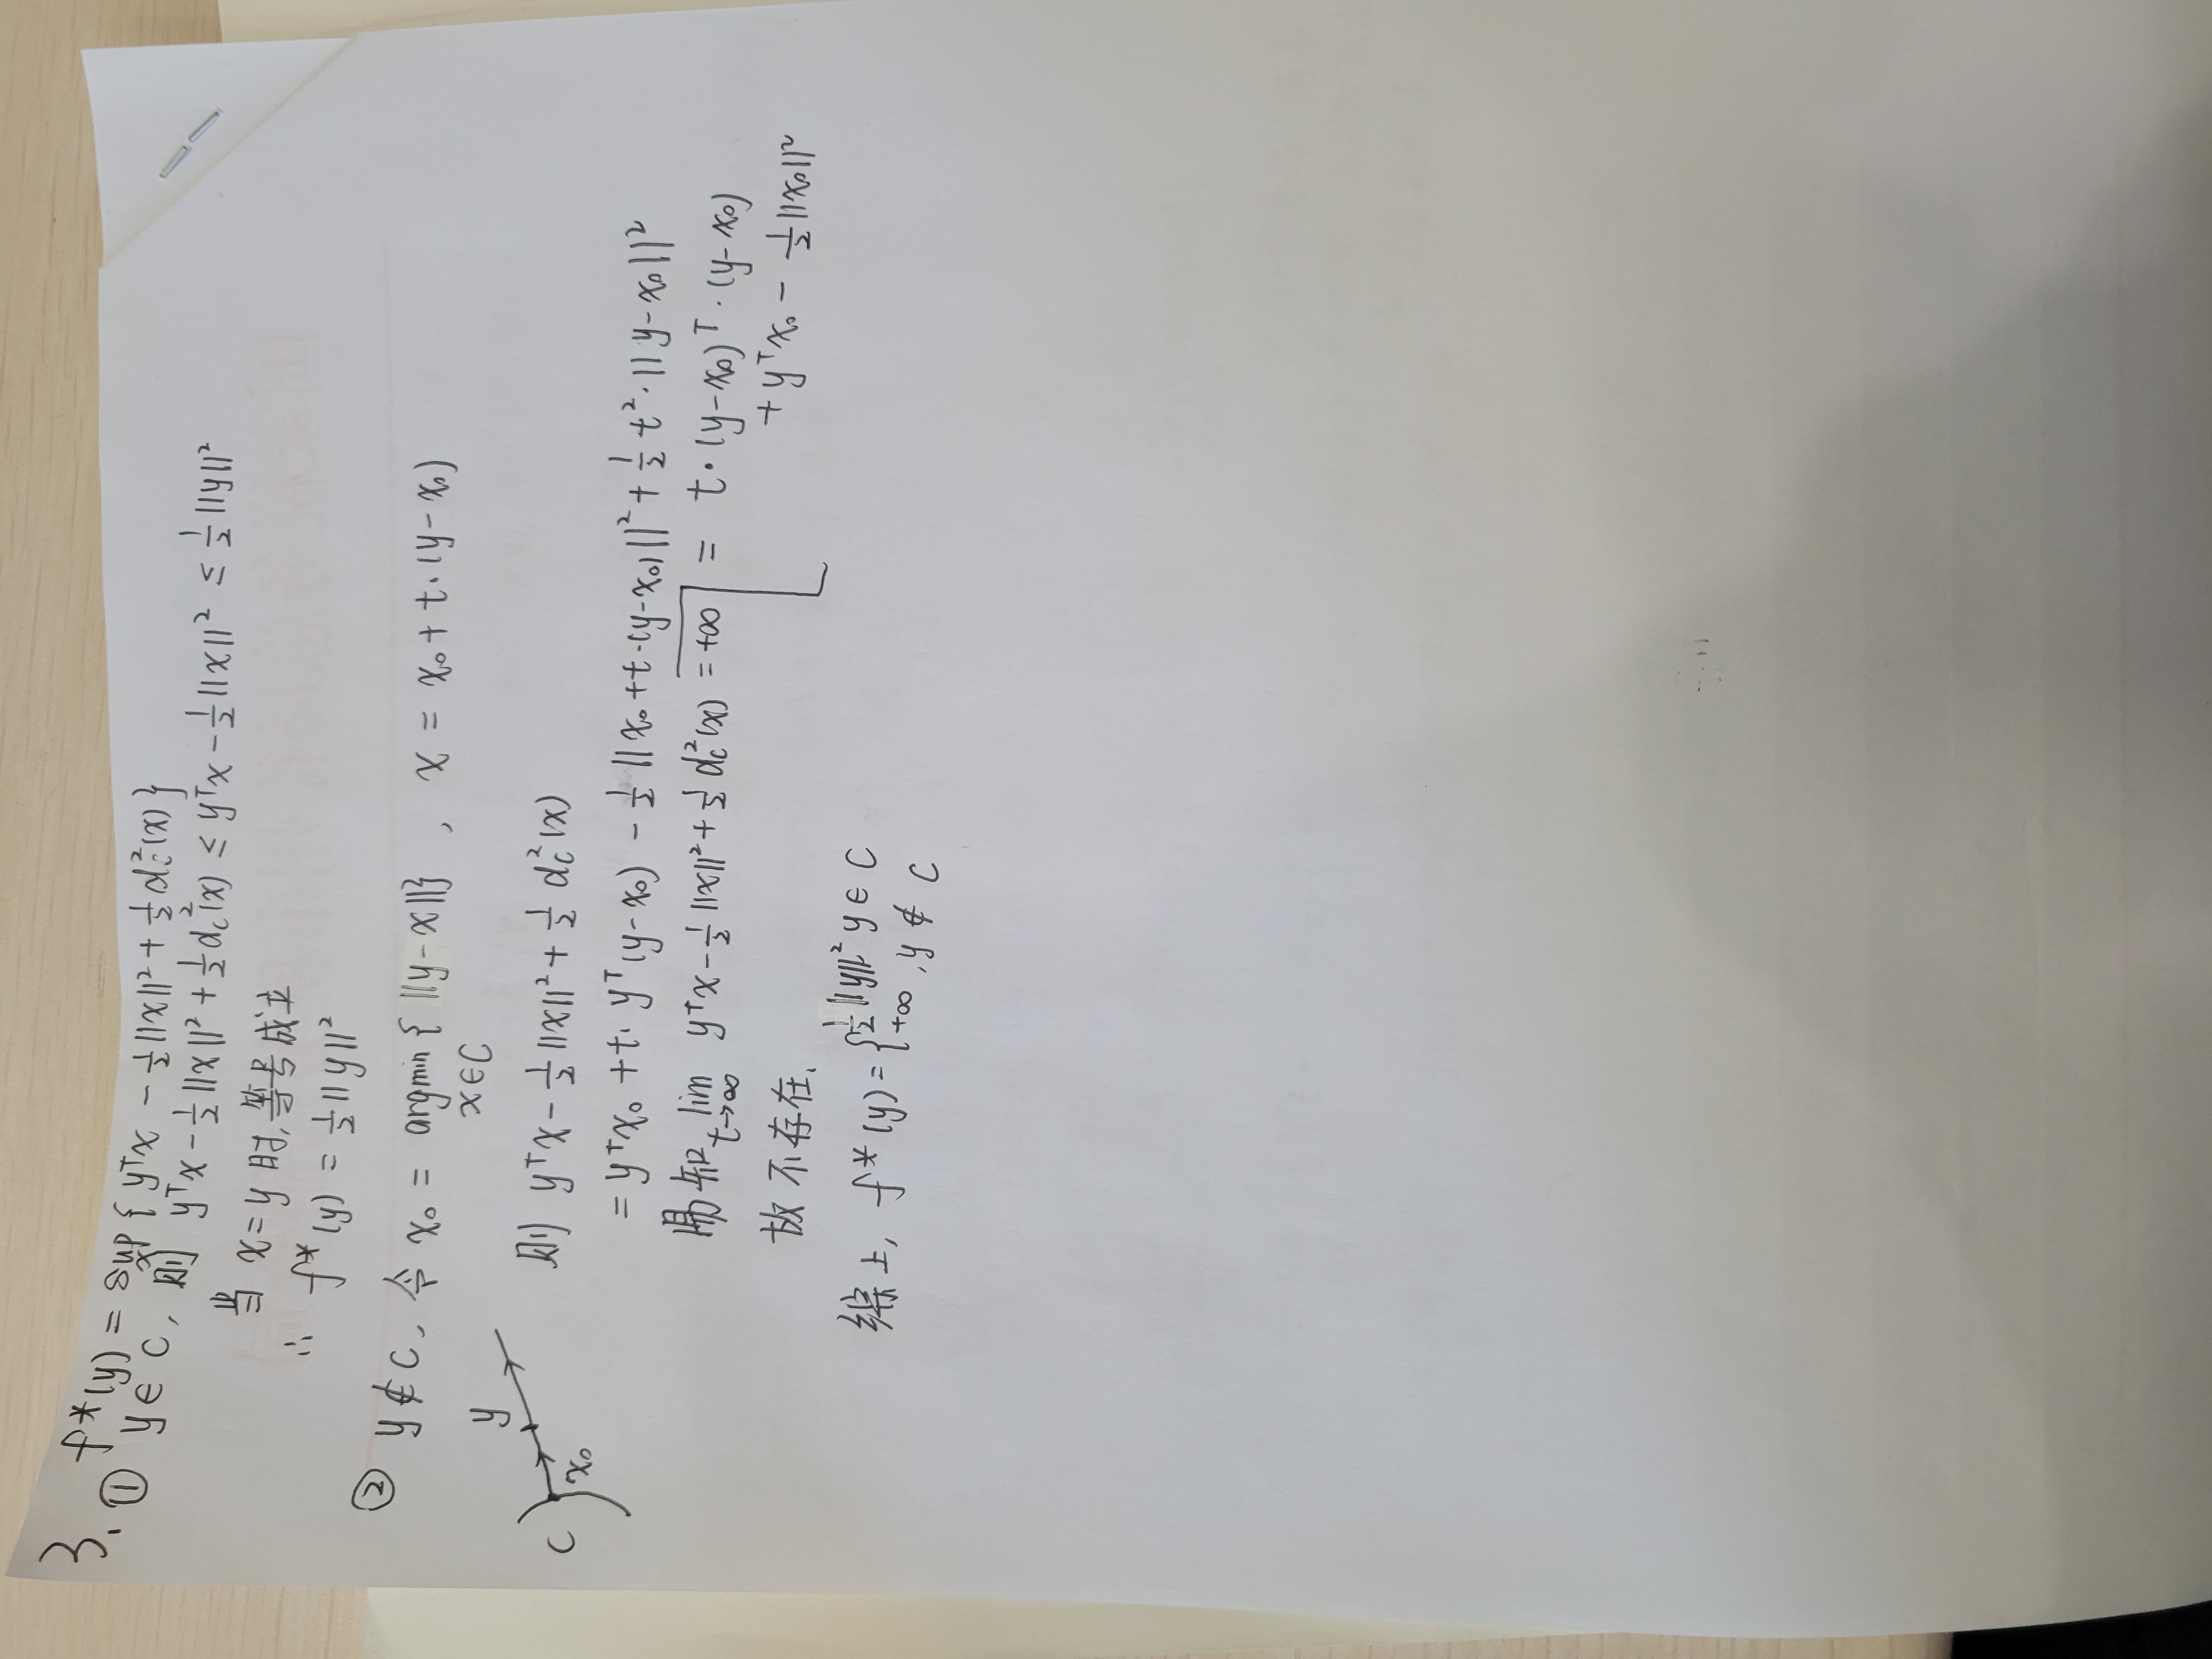 3. f*(y) = sup_x { yᵀx - ½||x||² + ½d_c²(x) }
① y ∈ C, 则 yᵀx - ½||x||² + ½d_c²(x) ≤ yᵀx - ½||x||² ≤ ½||y||²
当 x = y 时, 等号成立
∴ f*(y) = ½||y||²
② y ∉ C, 令 x₀ = argmin_{x∈C} { ||y-x|| } , x = x₀ + t·(y-x₀)
y
C
x₀
则 yᵀx - ½||x||² + ½ d_c²(x)
= yᵀx₀ + t· yᵀ(y-x₀) - ½||x₀ + t·(y-x₀)||² + ½t²·||y-x₀||²
= t·(y-x₀)ᵀ·(y-x₀)
+ yᵀx₀ - ½||x₀||²
易知 lim_{t→∞} yᵀx - ½||x||² + ½ d_c²(x) = +∞
故不存在.
综上, f*(y) = { ½||y||² y ∈ C
+∞ , y ∉ C